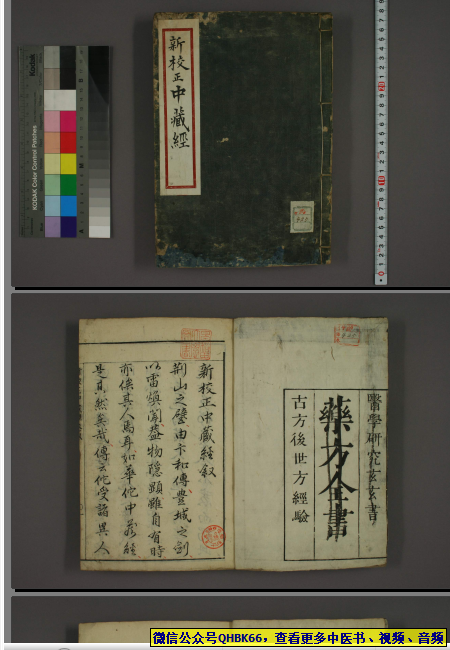 新校正中藏經
KODAK Color Control Patches
Kodak
醫學研究玄玄書
藥方全書
古方後世方經驗
新校正中藏經叙
荊山之璧由卞和傳豊城之劍
以雷煥闻蓋物隱顯雖自有時
亦俟其人焉耳如華佗中藏經
是其然矣哉傳云佗受謟異人
微信公众号QHBK66，查看更多中医书、视频、音频